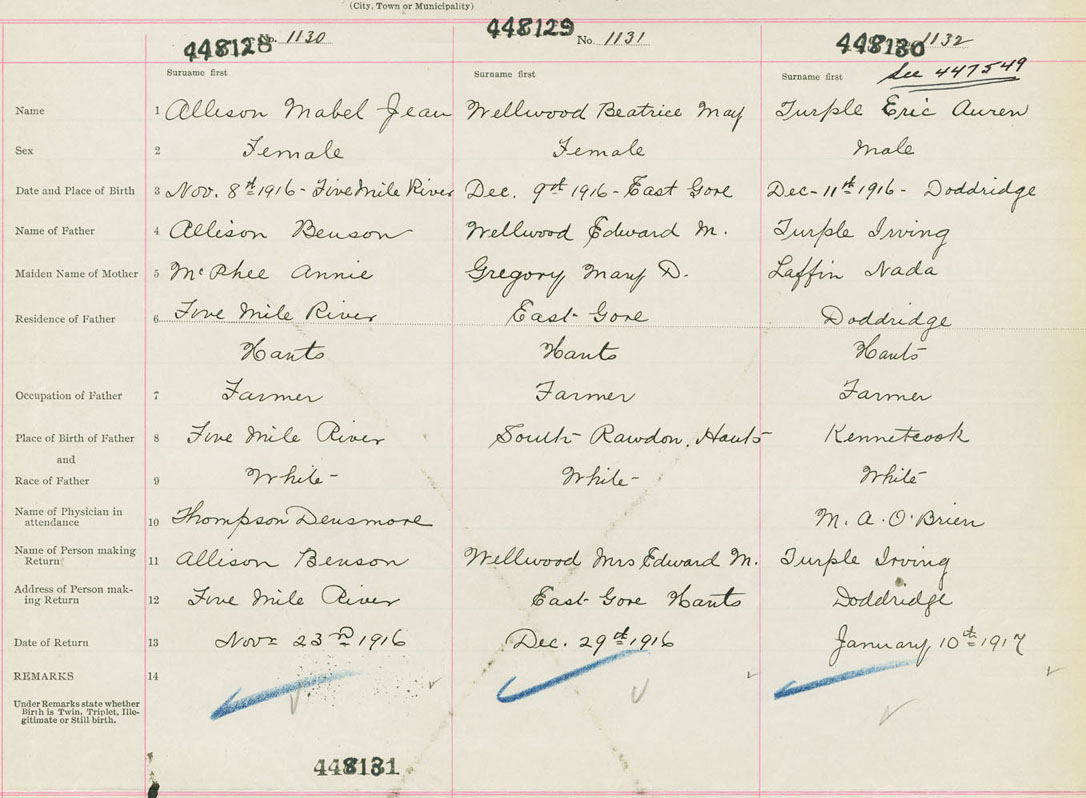 (City, Town or Municipality)
448128 No. 1130 448129 No. 1131 448130 1132
Surname first Surname first Surname first See 447549
Name 1 Allison Mabel Jean Wellwood Beatrice May Turple Eric Auren
Sex 2 Female Female Male
Date and Place of Birth 3 Nov. 8th 1916 - Five Mile River Dec. 9th 1916 - East Gore Dec - 11th 1916 - Doddridge
Name of Father 4 Allison Benson Wellwood Edward M. Turple Irving
Maiden Name of Mother 5 McPhee Annie Gregory Mary D. Laffin Nada
Residence of Father 6 Five Mile River East Gore Doddridge
Hants Hants Hants
Occupation of Father 7 Farmer Farmer Farmer
Place of Birth of Father 8 Five Mile River South Rawdon, Hants Kennetcook
and
Race of Father 9 White White White
Name of Physician in
attendance 10 Thompson Densmore M. A. O'Brien
Name of Person making
Return 11 Allison Benson Wellwood Mrs Edward M. Turple Irving
Address of Person mak-
ing Return 12 Five Mile River East Gore Hants Doddridge
Date of Return 13 Nov 23rd 1916 Dec. 29th 1916 January 10th 1917
REMARKS 14
Under Remarks state whether
Birth is Twin, Triplet, Ille-
gitimate or Still birth.
448131